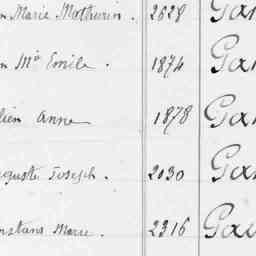 n Marie Mathurin. 2628 Gar
n Mie Emile. 1874 Gar
lien Anne 1878 Gar
uguste Joseph. 2030 Gar
nstans Marie. 2316 Gau